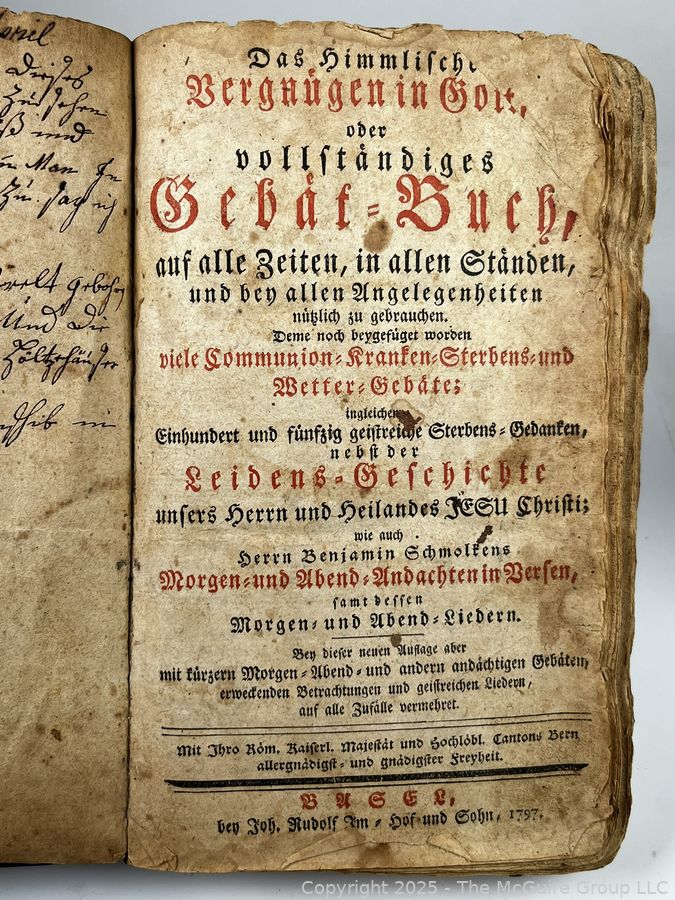 dieses
zu sehen
und
Man
zu sag ich
gebohrn
Und die
in
Das Himmlische
Vergnügen in Gott,
oder
vollständiges
Gebät-Buch,
auf alle Zeiten, in allen Ständen,
und bey allen Angelegenheiten
nützlich zu gebrauchen.
Deme noch beygefüget worden
viele Communion-Kranken-Sterbens-und
Wetter-Gebäte;
ingleichen
Einhundert und fünfzig geistreiche Sterbens-Gedanken,
nebst der
Leidens-Geschichte
unsers Herrn und Heilandes JESU Christi;
wie auch
Herrn Benjamin Schmolkens
Morgen-und Abend-Andachten in Versen,
samt dessen
Morgen- und Abend-Liedern.
Bey dieser neuen Auflage aber
mit kürzern Morgen-Abend-und andern andächtigen Gebäten,
erweckenden Betrachtungen und geistreichen Liedern,
auf alle Zufälle vermehret.
Mit Ihro Röm. Kaiserl. Majestät und Hochlöbl. Cantons Bern
allergnädigst- und gnädigster Freyheit.
BASEL,
bey Joh. Rudolf Im-Hof und Sohn, 1797.
Copyright 2025 - The McGuire Group LLC